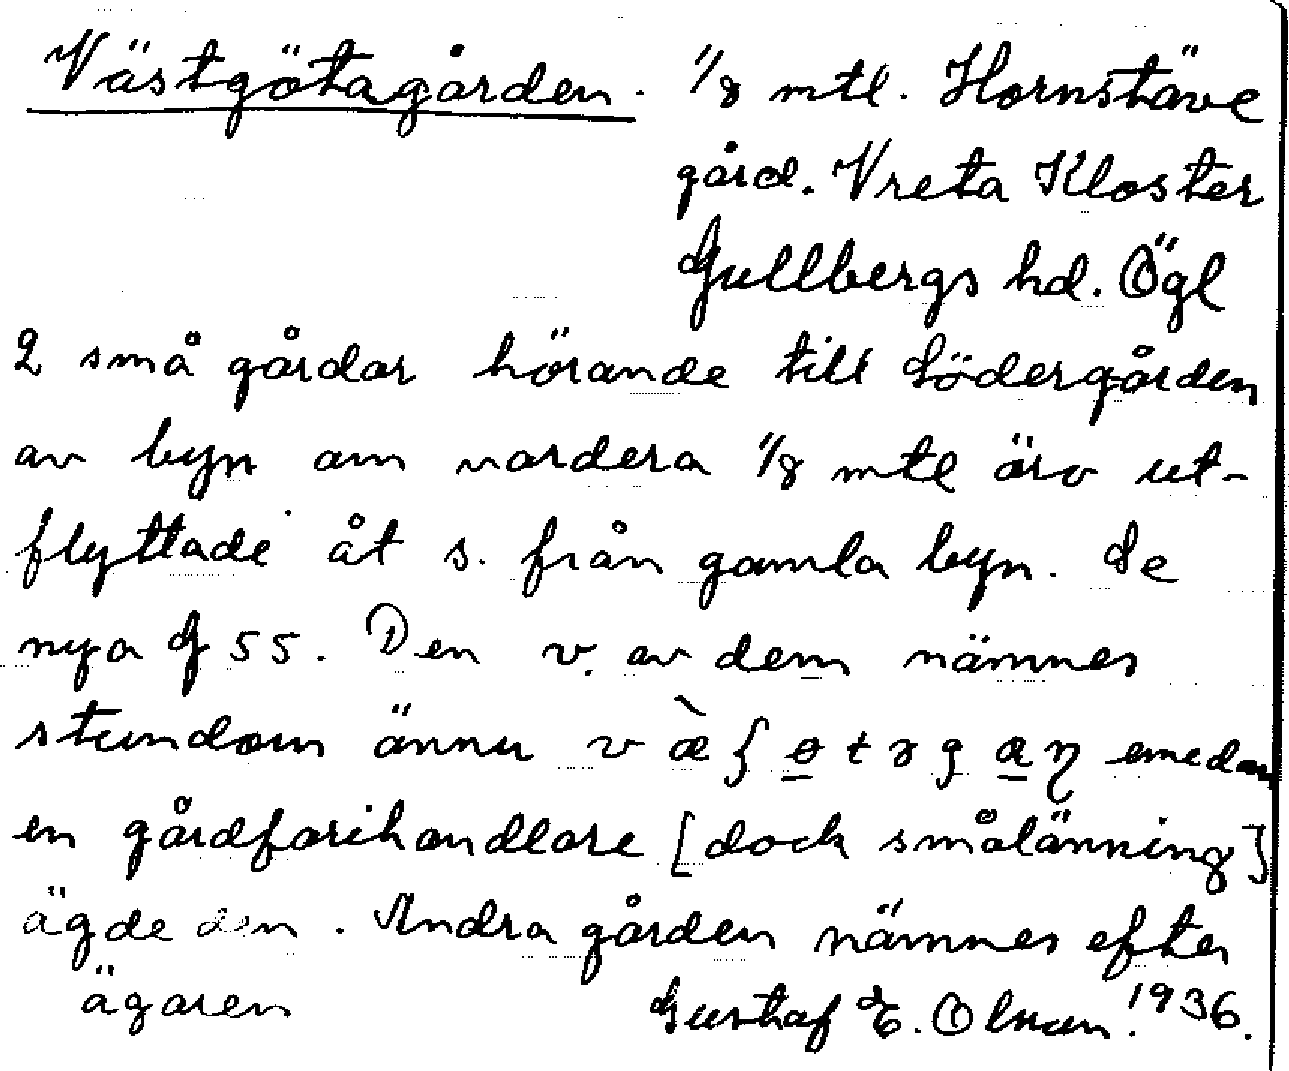 Västgötagården. 1/8 mtl. Hornstäve
gård. Vreta Kloster
Gullbergs hd. Ögl
2 små gårdar hörande till Södergården
av byn om vardera 1/8 mtl äro ut-
flyttade åt s. från gamla byn. Se
nya G 55. Den v. av dem nämnes
stundom ännu emedan
en gårdfarihandlare [dock smålänning]
ägde den. Andra gården nämnes efter
ägaren Gustaf E. Olsson. 1936.